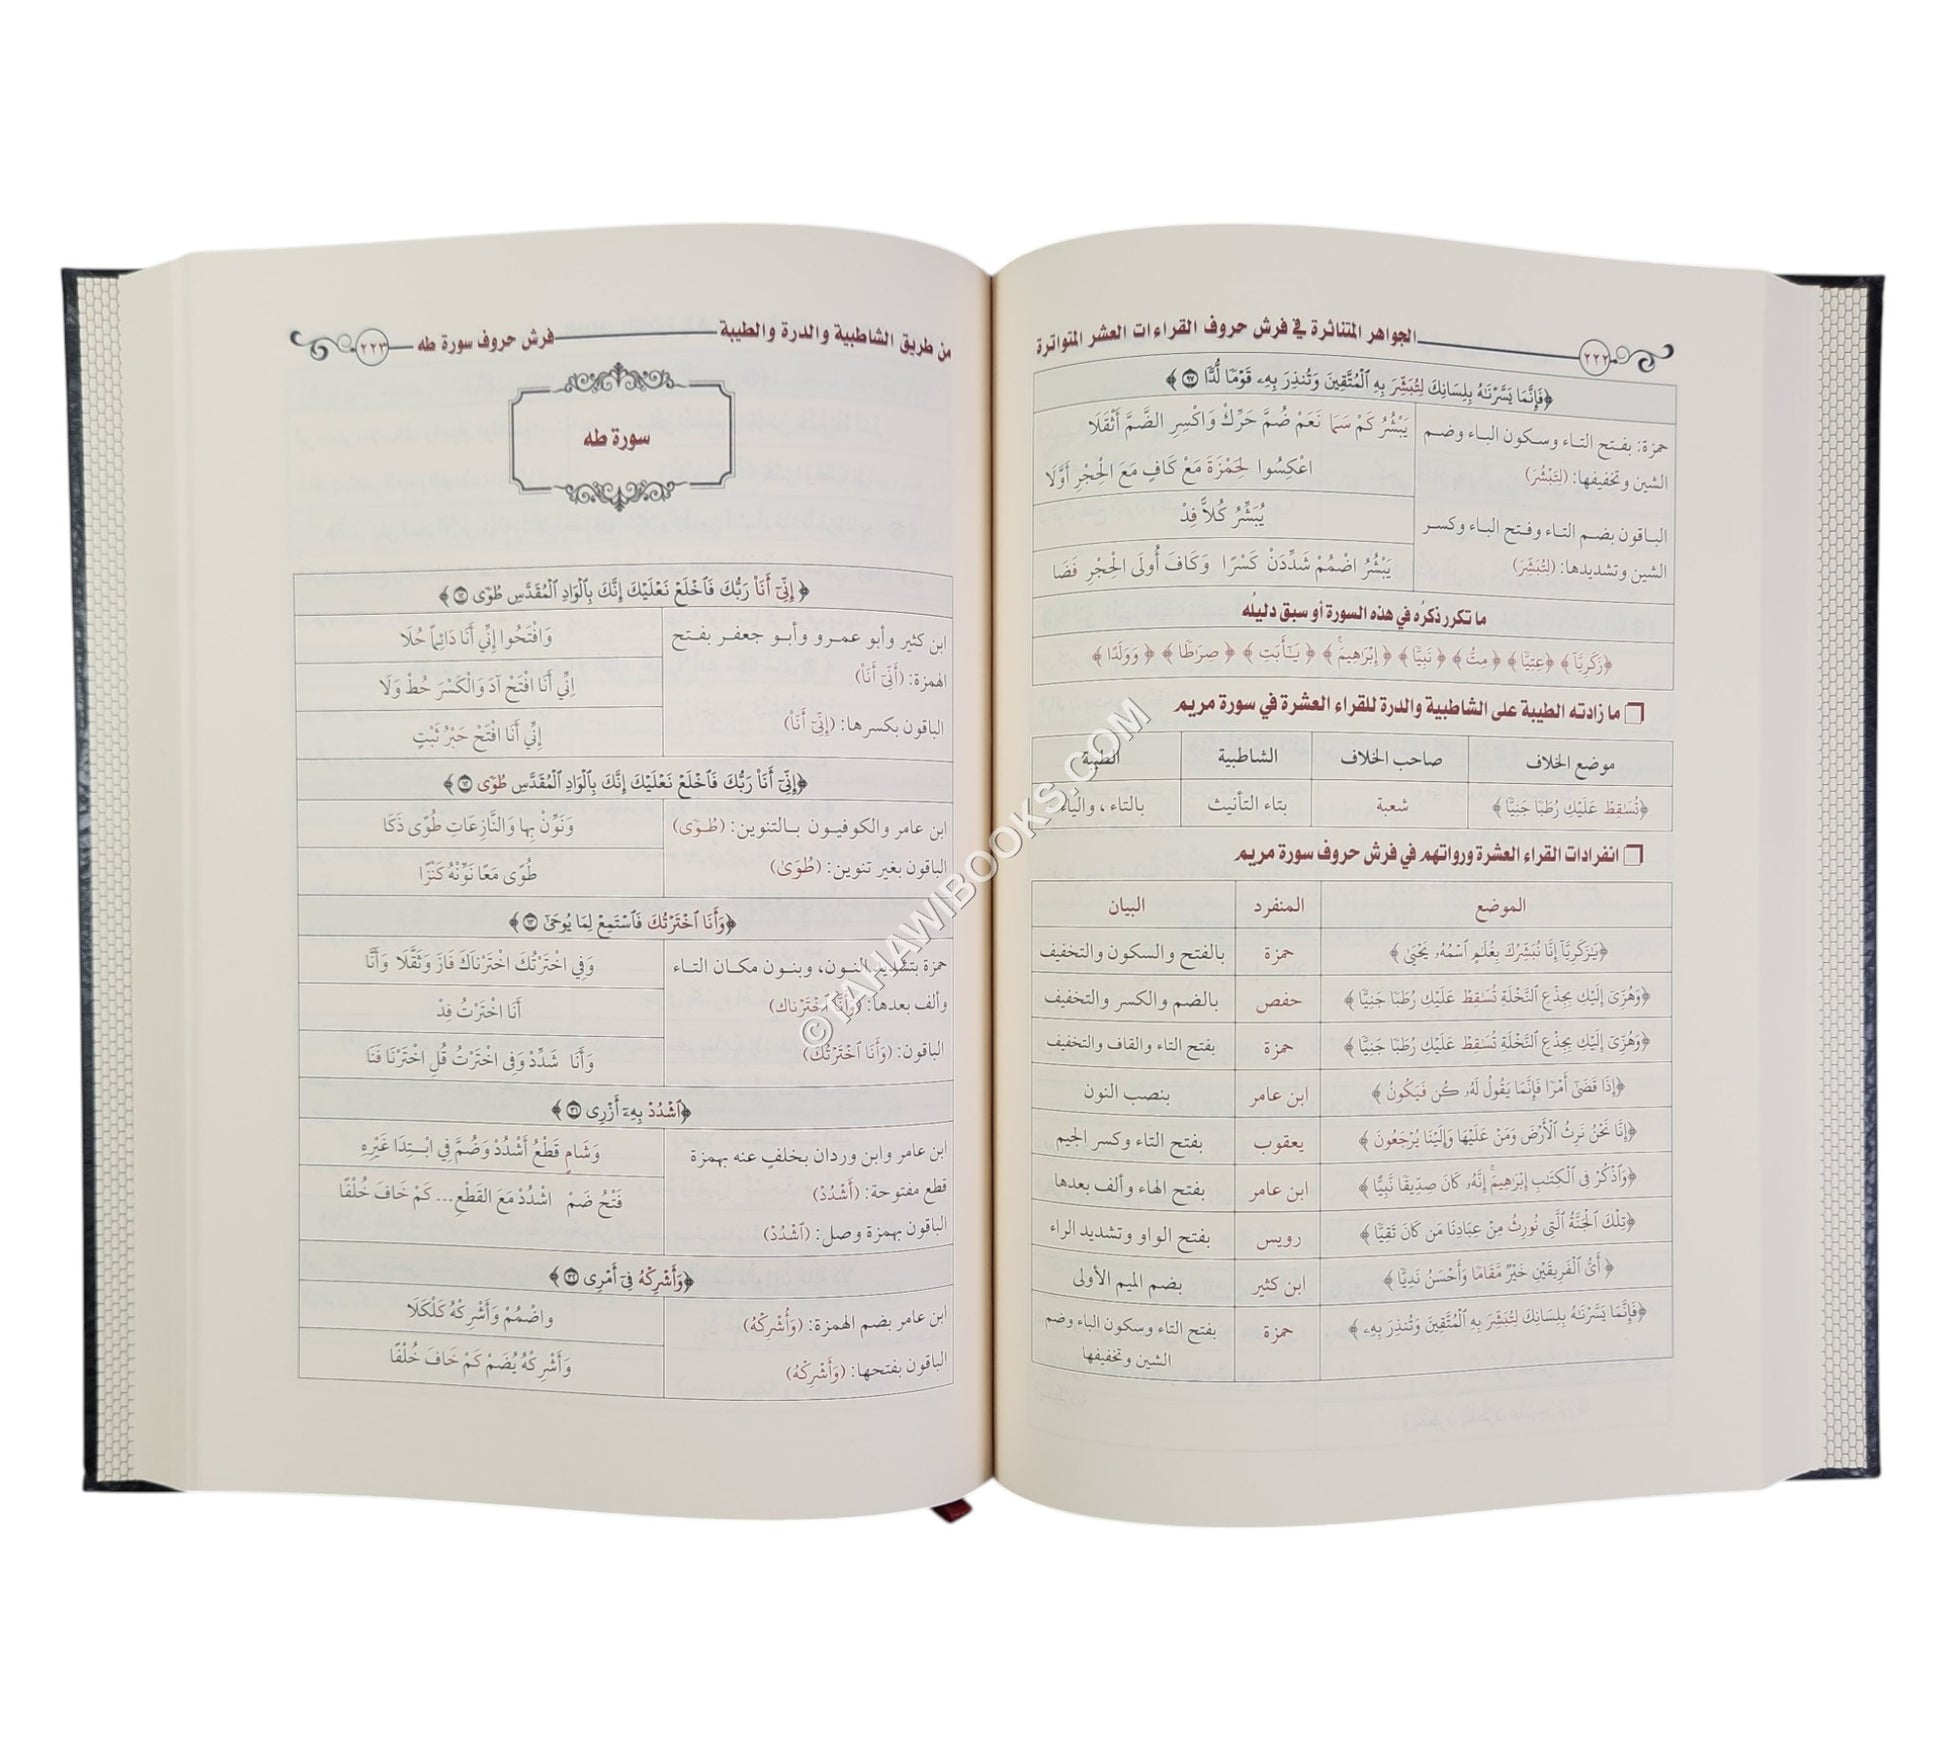 ٢٢٢ الجواهر المتناثرة في فرش حروف القراءات العشر المتواترة
﴿فَإِنَّمَا يَسَّرْنَٰهُ بِلِسَانِكَ لِتُبَشِّرَ بِهِ ٱلْمُتَّقِينَ وَتُنذِرَ بِهِۦ قَوْمًا لُّدًّا ٩٧﴾
حمزة: بفتح التاء وسكون الباء وضم
الشين وتخفيفها: (لِتَبْشُرَ)
الباقون بضم التاء وفتح الباء وكسر
الشين وتشديدها: (لِتُبَشِّرَ)
يَبْشُرُ كَمْ سَمَا نَعَمْ ضُمَّ حَرِّكْ وَاكْسِرِ الضَّمَّ أَثْقَلَا
اعْكِسُوا لِحَمْزَةَ مَعْ كَافٍ مَعَ الْحِجْرِ أَوَّلَا
يُبَشِّرُ كُلًّا فِدْ
يَبْشُرُ اضْمُمْ شَدِّدَنْ كَسْرًا وَكَافَ أُولَى الْحِجْرِ فَضَا
ما تكرر ذكرُه في هذه السورة أو سبق دليلُه
﴿زَكَرِيَّآ﴾ ﴿عِتِيًّا﴾ ﴿مِتُّ﴾ ﴿نَبِيًّا﴾ ﴿إِبْرَٰهِيمَ﴾ ﴿يَٰٓأَبَتِ﴾ ﴿صِرَٰطًا﴾ ﴿وَوَلَدًا﴾
ما زادته الطيبة على الشاطبية والدرة للقراء العشرة في سورة مريم
موضع الخلاف صاحب الخلاف الشاطبية الطيبة
﴿تُسَٰقِطْ عَلَيْكِ رُطَبًا جَنِيًّا﴾ شعبة بتاء التأنيث بالتاء، والياء
انفرادات القراء العشرة ورواتهم في فرش حروف سورة مريم
الموضع المنفرد البيان
﴿يَٰزَكَرِيَّآ إِنَّا نُبَشِّرُكَ بِغُلَٰمٍ ٱسْمُهُۥ يَحْيَىٰ﴾ حمزة بالفتح والسكون والتخفيف
﴿وَهُزِّىٓ إِلَيْكِ بِجِذْعِ ٱلنَّخْلَةِ تُسَٰقِطْ عَلَيْكِ رُطَبًا جَنِيًّا﴾ حفص بالضم والكسر والتخفيف
﴿وَهُزِّىٓ إِلَيْكِ بِجِذْعِ ٱلنَّخْلَةِ تُسَٰقِطْ عَلَيْكِ رُطَبًا جَنِيًّا﴾ حمزة بفتح التاء والقاف والتخفيف
﴿إِذَا قَضَىٰٓ أَمْرًا فَإِنَّمَا يَقُولُ لَهُۥ كُن فَيَكُونُ﴾ ابن عامر بنصب النون
﴿إِنَّا نَحْنُ نَرِثُ ٱلْأَرْضَ وَمَنْ عَلَيْهَا وَإِلَيْنَا يُرْجَعُونَ﴾ يعقوب بفتح التاء وكسر الجيم
﴿وَٱذْكُرْ فِى ٱلْكِتَٰبِ إِبْرَٰهِيمَ إِنَّهُۥ كَانَ صِدِّيقًا نَّبِيًّا﴾ ابن عامر بفتح الهاء وألف بعدها
﴿تِلْكَ ٱلْجَنَّةُ ٱلَّتِى نُورِثُ مِنْ عِبَادِنَا مَن كَانَ تَقِيًّا﴾ رويس بفتح الواو وتشديد الراء
﴿أَىُّ ٱلْفَرِيقَيْنِ خَيْرٌ مَّقَامًا وَأَحْسَنُ نَدِيًّا﴾ ابن كثير بضم الميم الأولى
﴿فَإِنَّمَا يَسَّرْنَٰهُ بِلِسَانِكَ لِتُبَشِّرَ بِهِ ٱلْمُتَّقِينَ وَتُنذِرَ بِهِۦ﴾ حمزة بفتح التاء وسكون الباء وضم
الشين وتخفيفها
من طريق الشاطبية والدرة والطيبة فرش حروف سورة طه ٢٢٣
سورة طه
﴿إِنِّىٓ أَنَا۠ رَبُّكَ فَٱخْلَعْ نَعْلَيْكَ إِنَّكَ بِٱلْوَادِ ٱلْمُقَدَّسِ طُوًى ١٢﴾
ابن كثير وأبو عمرو وأبو جعفر بفتح
الهمزة: (أَنِّىٓ أَنَا۠)
الباقون بكسرها: (إِنِّىٓ أَنَا۠)
وَافْتَحُوا إِنِّي أَنَا دَائِمًا حُلَا
إِنِّي أَنَا افْتَحْ آدَ وَالْكَسْرَ حُطْ وَلَا
إِنِّي أَنَا افْتَحْ حَبْرُ ثَبْتٍ
﴿إِنِّىٓ أَنَا۠ رَبُّكَ فَٱخْلَعْ نَعْلَيْكَ إِنَّكَ بِٱلْوَادِ ٱلْمُقَدَّسِ طُوًى ١٢﴾
ابن عامر والكوفيون بالتنوين: (طُوًى)
الباقون بغير تنوين: (طُوَىٰ)
وَنَوِّنْ بِها وَالنَّازِعَاتِ طُوًى ذَكَا
طُوًى مَعًا نَوِّنْهُ كَنْزًا
﴿وَأَنَا ٱخْتَرْتُكَ فَٱسْتَمِعْ لِمَا يُوحَىٰٓ ١٣﴾
حمزة بتشديد النون، وبنون مكان التاء
وألف بعدها: (وَأَنَّا ٱخْتَرْنَاكَ)
الباقون: (وَأَنَا ٱخْتَرْتُكَ)
وَفِي اخْتَرْتُكَ اخْتَرْنَاكَ فَازَ وَثَقَّلَا وَأَنَّا
أَنَا اخْتَرْتُ فِدْ
وَأَنَا شَدِّدْ وَفِى اخْتَرْتُ قُلِ اخْتَرْنَا فَنَا
﴿ٱشْدُدْ بِهِۦٓ أَزْرِى ٣١﴾
ابن عامر وابن وردان بخلفٍ عنه بهمزة
قطع مفتوحة: (أَشْدُدْ)
الباقون بهمزة وصل: (ٱشْدُدْ)
وَشَامٍ قَطْعُ أَشْدُدْ وَضُمَّ فِي ابْتِدَا غَيْرِهِ
فَتْحُ ضَمْ اشْدُدْ مَعَ القَطْعِ... كَمْ خَافَ خُلْفًا
﴿وَأَشْرِكْهُ فِىٓ أَمْرِى ٣٢﴾
ابن عامر بضم الهمزة: (وَأُشْرِكْهُ)
الباقون بفتحها: (وَأَشْرِكْهُ)
واضْمُمْ وَأَشْرِكْهُ كَلْكَلَا
وَأَشْرِكْهُ يُضَمْ كَمْ خَافَ خُلْفًا
©TAHAWIBOOKS.COM